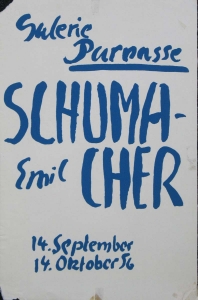 Galerie
Parnasse
SCHUMA-
Emil CHER
14. September
14. Oktober 56